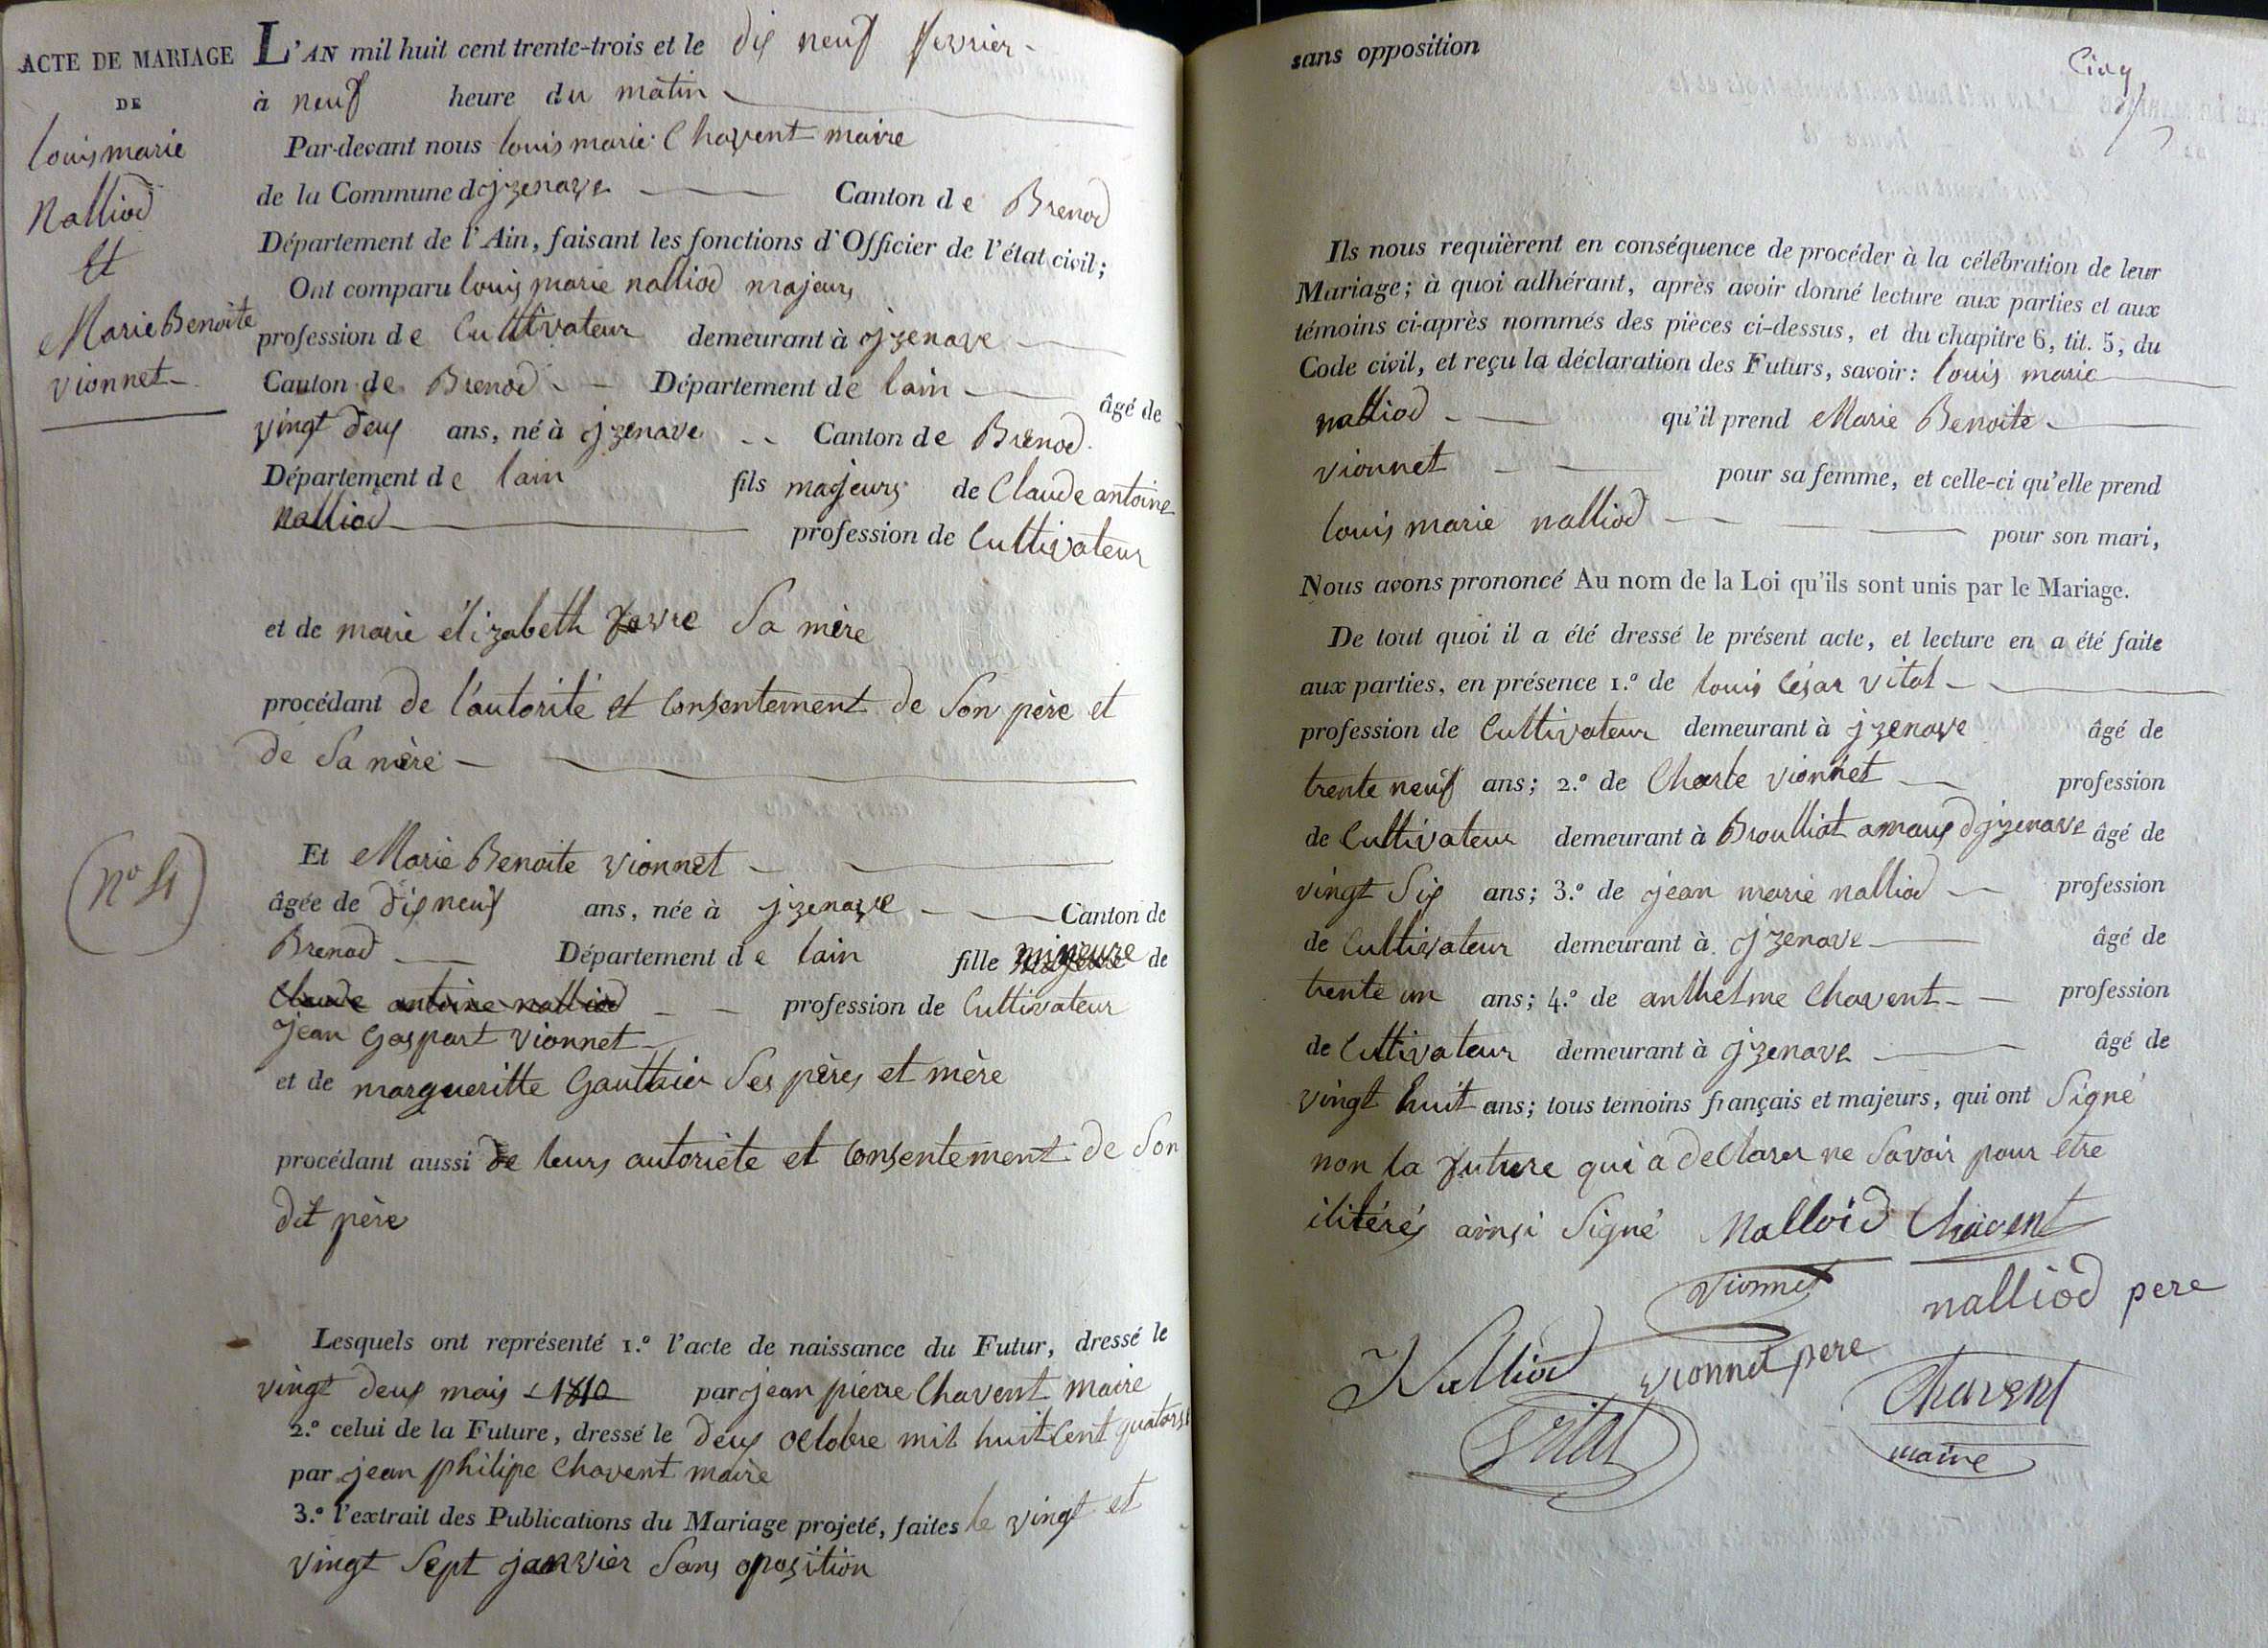 ACTE DE MARIAGE
DE
louis marie
Nalliod
Et
Marie Benoite
vionnet
(n° 4)
L'AN mil huit cent trente-trois et le dix neuf fevrier
à neuf heure du matin
Par-devant nous louis marie Chavent maire
de la Commune d'jzenave Canton de Brenod
Département de l'Ain, faisant les fonctions d'Officier de l'état civil;
Ont comparu louis marie nalliod majeurs
profession de Cultivateur demeurant à jzenave
Canton de Brenod Département de lain âgé de
vingt deux ans, né à jzenave Canton de Brenod.
Département de lain fils majeurs de Claude antoine
Nalliod profession de Cultivateur
et de marie élizabeth favre Sa mère
procédant de l'autorité et Consentement de Son père et
de Sa mère
Et Marie Benoite vionnet
âgée de dix neuf ans, née à jzenave Canton de
Brenod Département de lain fille mineure de
Claude antoine nalliod profession de Cultivateur
jean Gaspart vionnet
et de margueritte Gauthier Ses pères et mère
procédant aussi de leurs autoriété et Consentement de Son
dit père
Lesquels ont représenté 1.° l'acte de naissance du Futur, dressé le
vingt deux mais 1810 par jean pierre Chavent maire
2.° celui de la Future, dressé le deux octobre mil huit Cent quatorse
par jean philipe Chavent maire
3.° l'extrait des Publications du Mariage projeté, faites le vingt et
vingt Sept janvier Sans oposition
sans opposition
Cinq
Ils nous requièrent en conséquence de procéder à la célébration de leur
Mariage; à quoi adhérant, après avoir donné lecture aux parties et aux
témoins ci-après nommés des pièces ci-dessus, et du chapitre 6, tit. 5, du
Code civil, et reçu la déclaration des Futurs, savoir: louis marie
nalliod qu'il prend Marie Benoite
vionnet pour sa femme, et celle-ci qu'elle prend
louis marie nalliod pour son mari,
Nous avons prononcé Au nom de la Loi qu'ils sont unis par le Mariage.
De tout quoi il a été dressé le présent acte, et lecture en a été faite
aux parties, en présence 1.° de louis César vital
profession de Cultivateur demeurant à jzenave âgé de
trente neuf ans; 2.° de Charle vionnet profession
de Cultivateur demeurant à Broulliat amaux djzenave âgé de
vingt Six ans; 3.° de jean marie nalliod profession
de Cultivateur demeurant à jzenave âgé de
trente un ans; 4.° de anthelme Chavent profession
de Cultivateur demeurant à jzenave âgé de
vingt huit ans; tous témoins français et majeurs, qui ont Signé
non la future qui a déClarer ne Savoir pour etre
ilitérés ainsi Signé Nalloid Chavent
Vionnet
nalliod pere
Nalliod vionnet pere
Vital
Chavent
maire